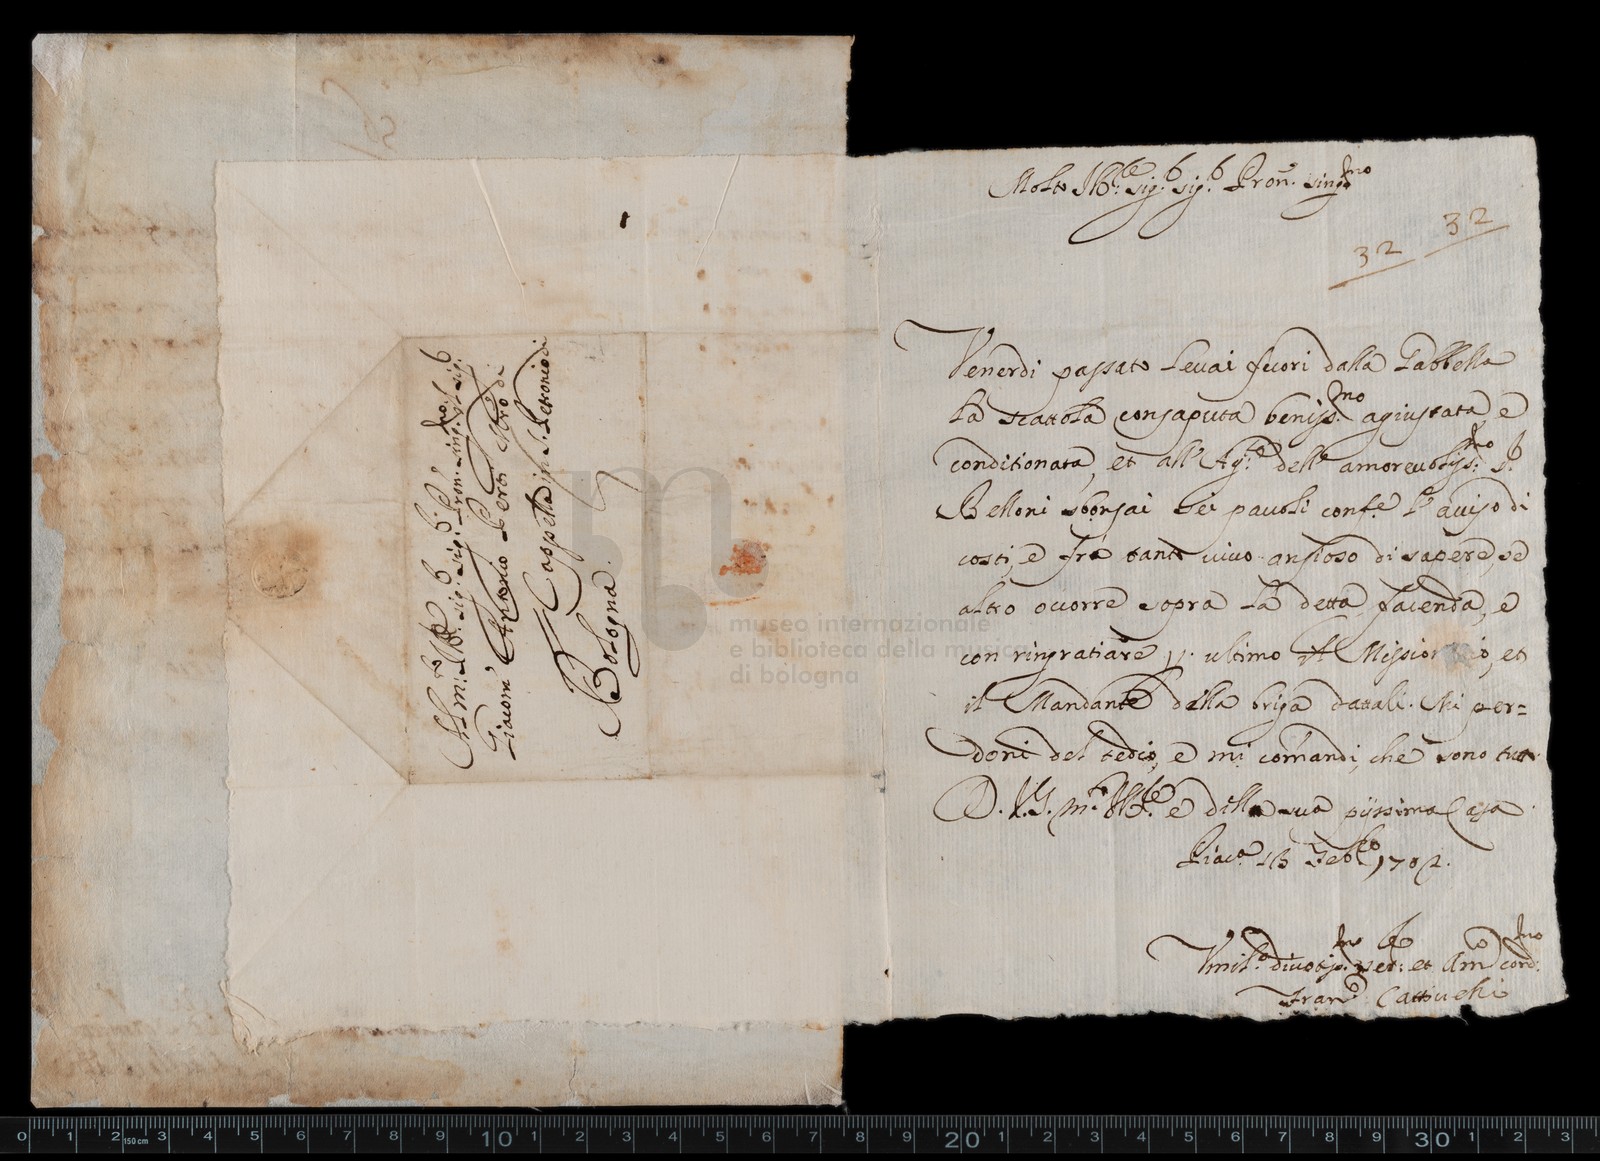 All m: Ill: Sig: Sig: Pron: Sing:mo Sig: Sig:
Giacom' Antonio Perti Mro di
Cappella in S. Petronio di
Bologna.
Molto Ill:re Sig: Sig: Pron: sing:mo
32 32
Venerdi passato levai fuori dalla Gabbella
la scattola consaputa beniss:mo agiustata, e
conditionata, et all' Ag:te dell' amorevoliss:mo S:
Belloni sborsai sei pauoli conf:e l'auiso di
costi, e frà tanto viuo ansioso di sapere, se
altro ocorre sopra la detta facenda, e
con ringratiare p. ultimo il et
il Mandante della briga datali. Mi per=
doni del tedio, e mi comandi, che sono tutto
D. V.S. m:to Ill:re e della sua pijssima Casa
Piac:a 18 Feb:ro 1702.
Vmil:o diuotiss:mo ser: et Am:o cord:mo
Fran:o Cattiuelli
museo internazionale
e biblioteca della musica
di bologna
0 1 2 150 cm 3 4 5 6 7 8 9 10 1 2 3 4 5 6 7 8 9 20 1 2 3 4 5 6 7 8 9 30 1 2 3